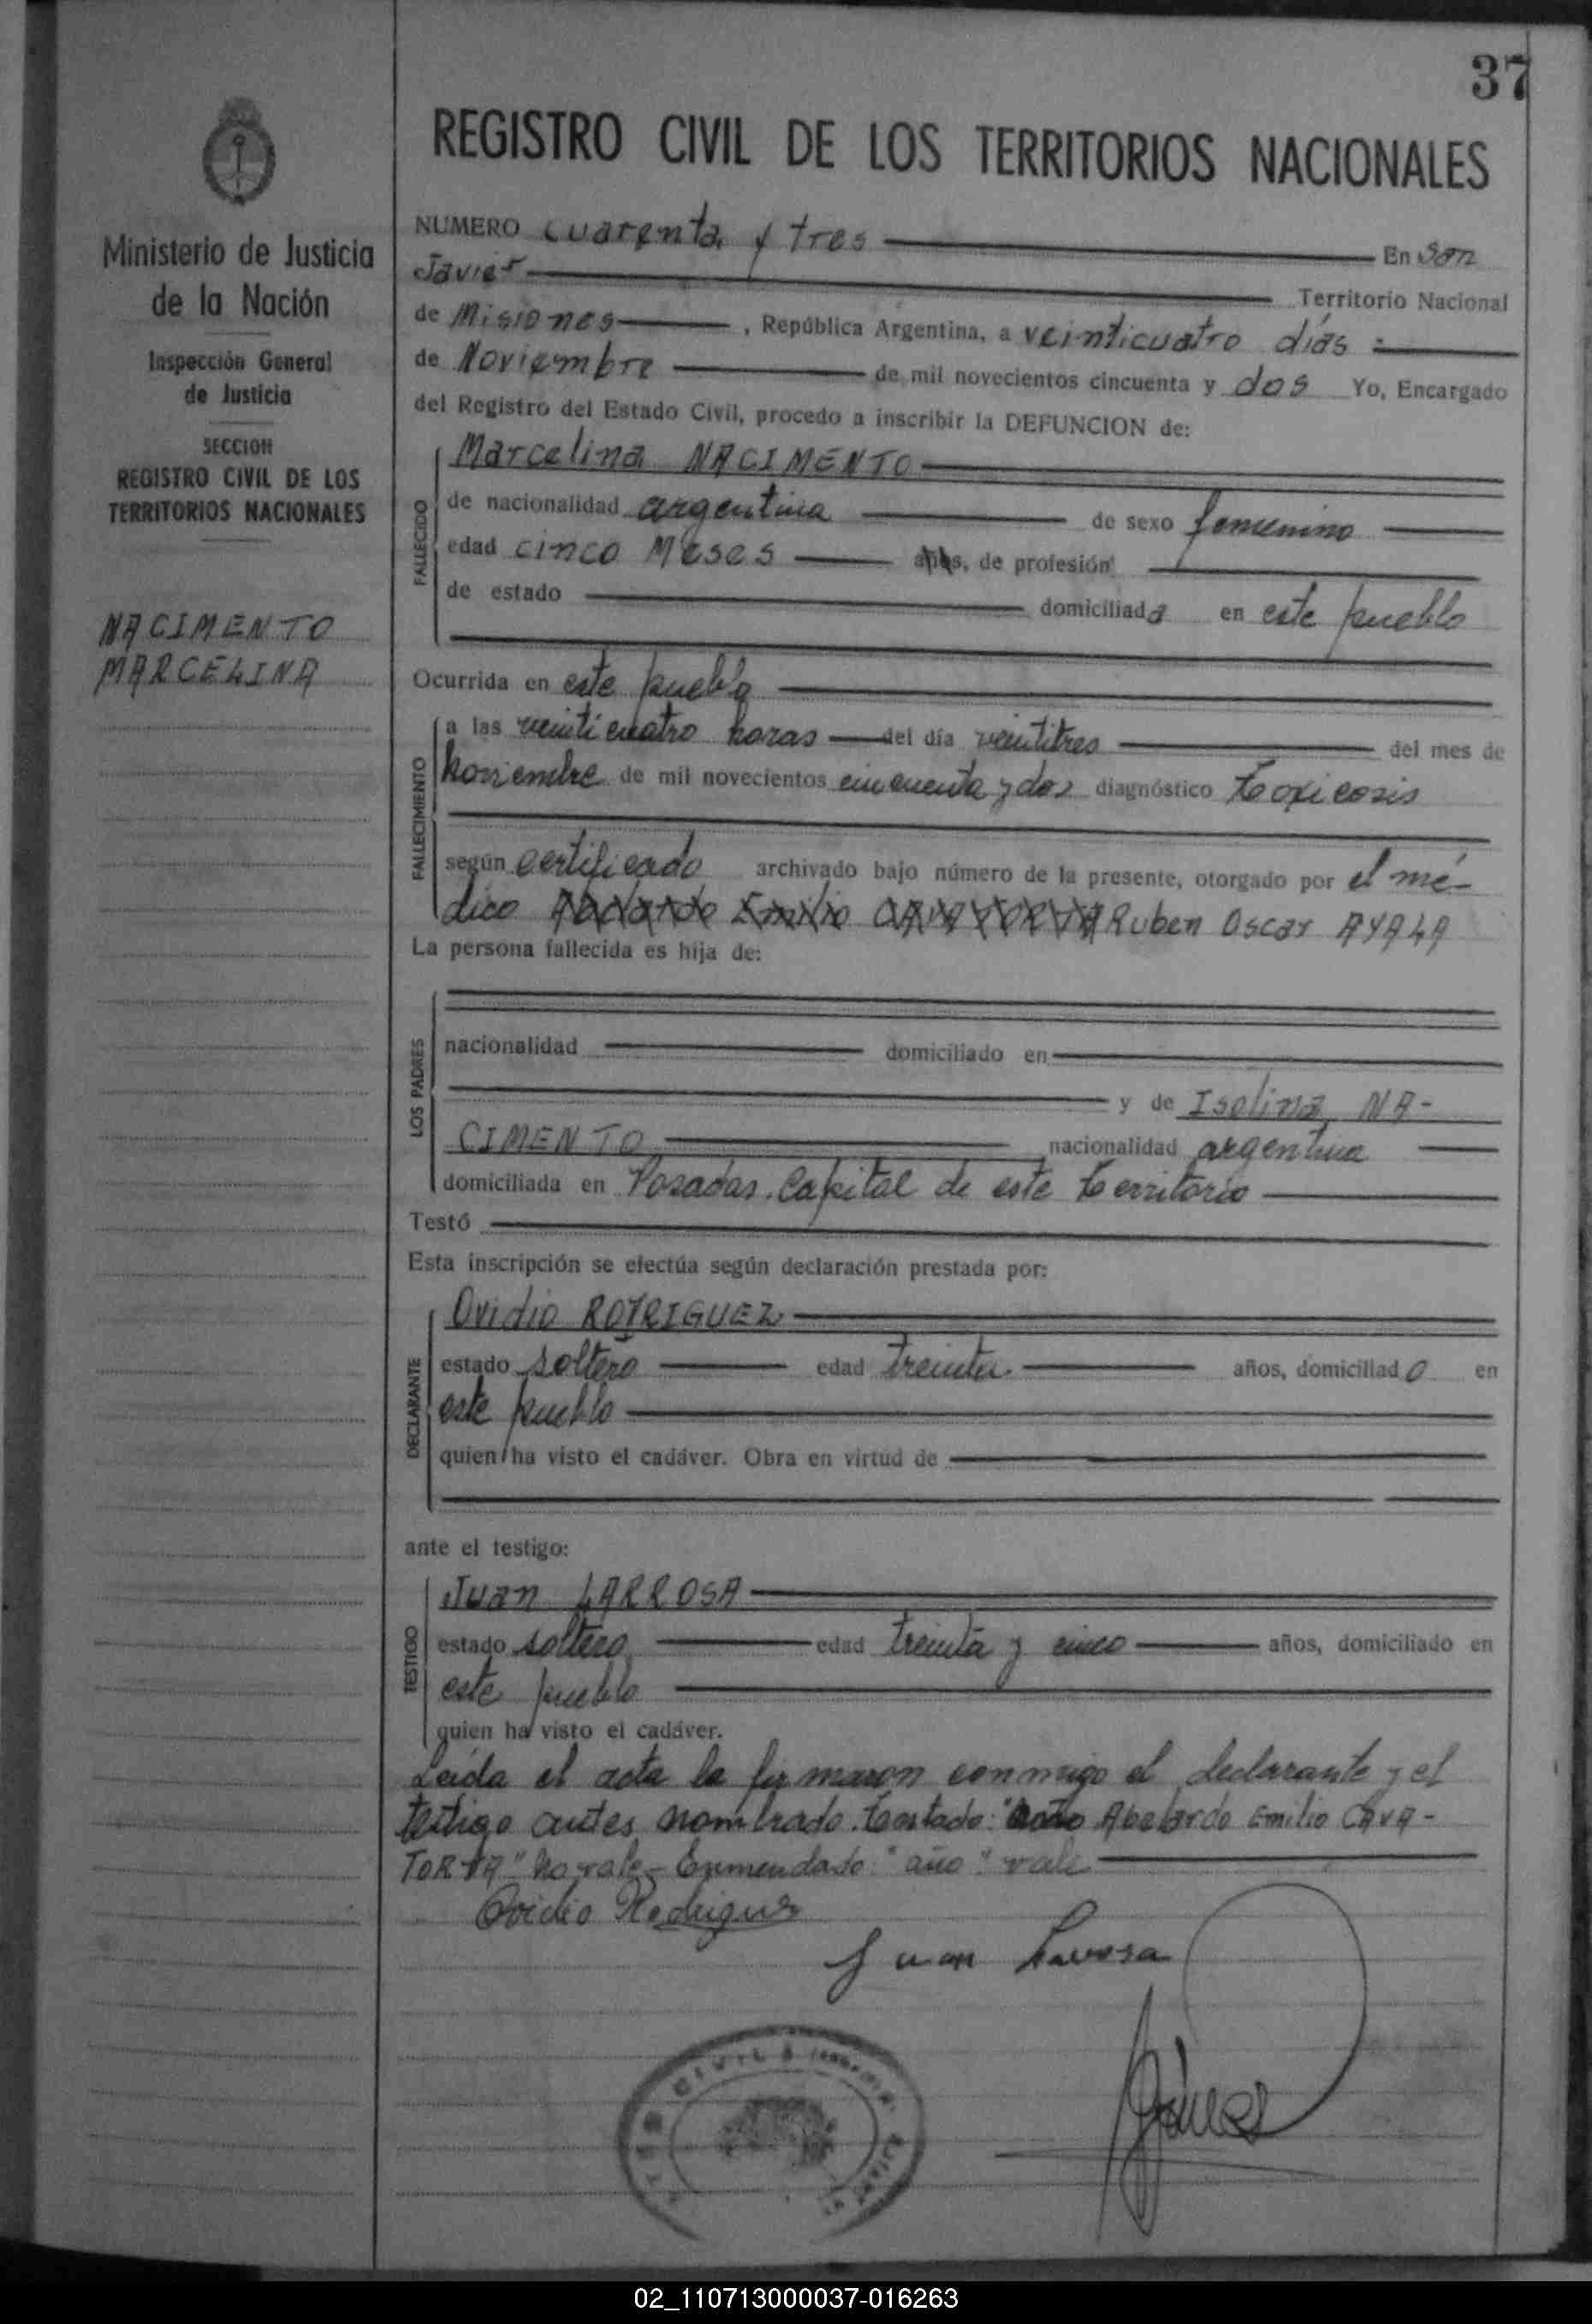 37
REGISTRO CIVIL DE LOS TERRITORIOS NACIONALES
Ministerio de Justicia
de la Nación
Inspección General
de Justicia
SECCION
REGISTRO CIVIL DE LOS
TERRITORIOS NACIONALES
NACIMENTO
MARCELINA
NUMERO cuarenta y tres En San
Javier Territorio Nacional
de Misiones, República Argentina, a veinticuatro días
de Noviembre de mil novecientos cincuenta y dos Yo, Encargado
del Registro del Estado Civil, procedo a inscribir la DEFUNCION de:
FALLECIDO
Marcelina NACIMENTO
de nacionalidad argentina de sexo femenino
edad cinco Meses años, de profesión
de estado domiciliada en este pueblo
Ocurrida en este pueblo
FALLECIMIENTO
a las veinticuatro horas del día veintitres del mes de
noviembre de mil novecientos cincuenta y dos diagnóstico toxicosis
según certificado archivado bajo número de la presente, otorgado por el mé-
dico Abelardo Emilio CAVATORTA Ruben Oscar AYALA
La persona fallecida es hija de:
LOS PADRES
nacionalidad domiciliado en
y de Isolina NA-
CIMENTO nacionalidad argentina
domiciliada en Posadas. Capital de este territorio
Testó
Esta inscripción se efectúa según declaración prestada por:
DECLARANTE
Ovidio RODRIGUEZ
estado soltero edad treinta años, domiciliado en
este pueblo
quien ha visto el cadáver. Obra en virtud de
ante el testigo:
TESTIGO
Juan LARROSA
estado soltero edad treinta y cinco años, domiciliado en
este pueblo
quien ha visto el cadáver.
Leida el acta la firmaron conmigo el declarante y el
testigo antes nombrado. Testado: Abelardo Emilio CAVA-
TORTA" no vale- Enmendado: "año" vale
Ovidio Rodriguez
Juan Larrosa
02_110713000037-016263